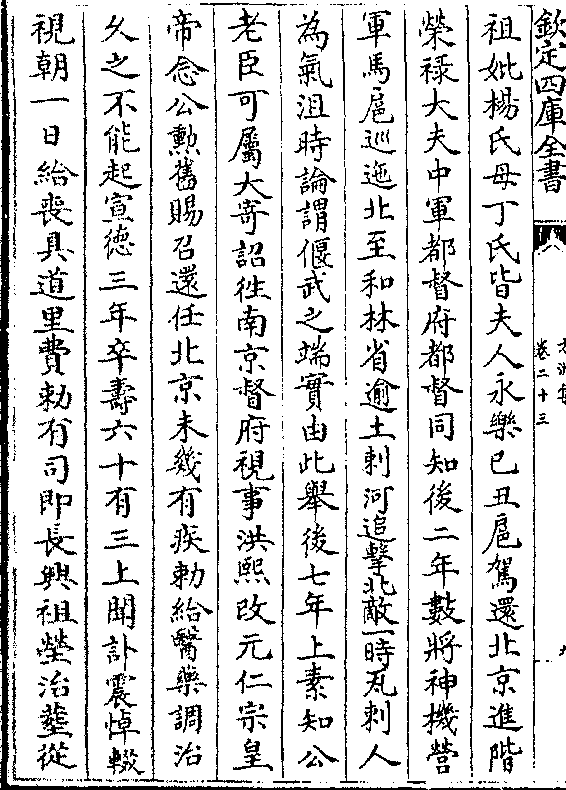 欽定四庫全書
卷二十三
祖妣楊氏母丁氏皆夫人永樂己丑扈駕還北京進階
榮祿大夫中軍都督府都督同知後二年數將神機營
軍馬扈巡迤北至和林省逾土剌河追擊北敵一時瓦剌人
為氣沮時論謂偃武之端實由此舉後七年上素知公
老臣可屬大寄詔徃南京督府視事洪熙改元仁宗皇
帝念公勲舊賜召還任北京未幾有疾勅給醫藥調治
久之不能起宣德三年卒壽六十有三上聞訃震悼輟
視朝一日給喪具道里費勅有司即長興祖塋治塟從